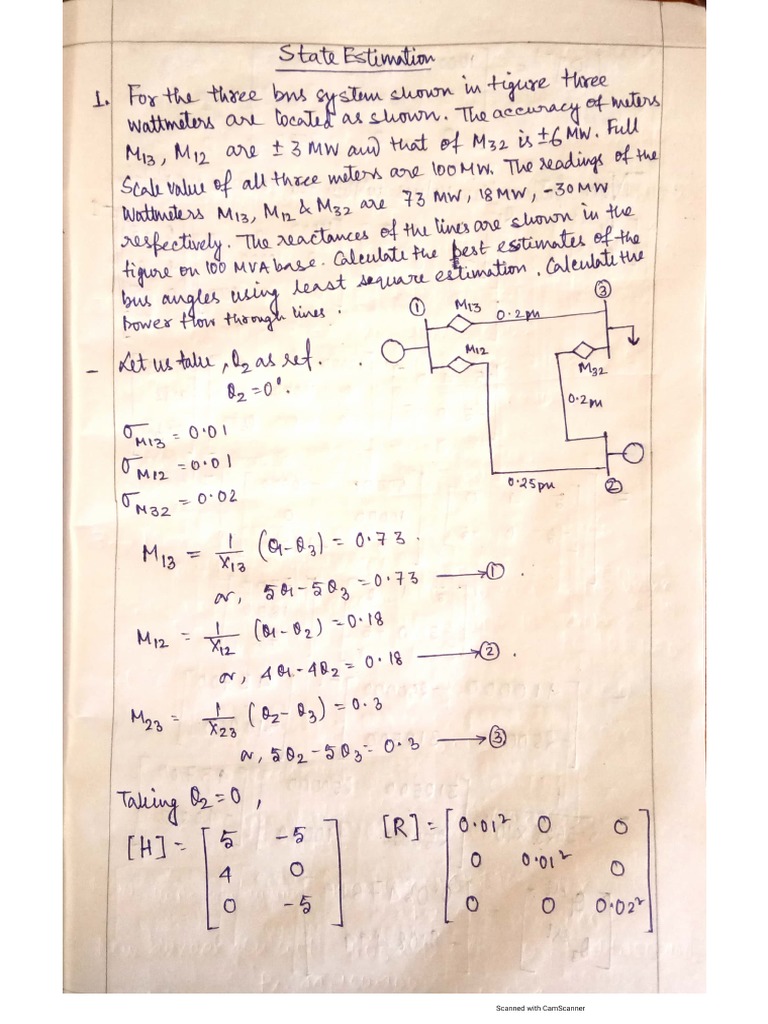 State Estimation
1. For the three bus system shown in figure three
wattmeters are located as shown. The accuracy of meters
M13, M12 are ± 3 MW and that of M32 is ±6 MW. Full
Scale value of all three meters are 100 MW. The readings of the
Wattmeters M13, M12 & M32 are 73 MW, 18 MW, -30 MW
respectively. The reactances of the lines are shown in the
figure on 100 MVA base. Calculate the best estimates of the
bus angles using least square estimation. Calculate the
power flow through lines.
① M13 0.2pu ③
M12
M32
0.2pu
0.25pu ②
- Let us take, θ2 as ref.
θ2 = 0°.
σM13 = 0.01
σM12 = 0.01
σM32 = 0.02
M13 = 1/X13 (θ1-θ3) = 0.73.
or, 5θ1-5θ3 = 0.73 → ①.
M12 = 1/X12 (θ1-θ2) = 0.18
or, 4θ1-4θ2 = 0.18 → ②.
M23 = 1/X23 (θ2-θ3) = 0.3
or, 5θ2-5θ3 = 0.3 → ③
Taking θ2=0,
[H] = [5 -5
4 0
0 -5]
[R] = [0.01² 0 0
0 0.01² 0
0 0 0.02²]
Scanned with CamScanner